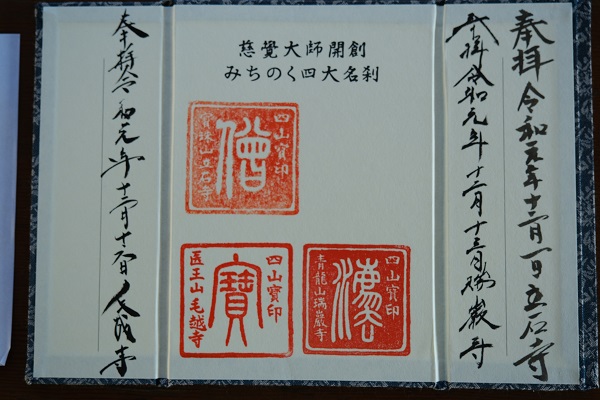 奉拝 令和元年十二月一日 立石寺
奉拝 令和元年十二月十三日 瑞巌寺
慈覺大師開創
みちのく四大名刹
四山寶印
僧
寳珠山立石寺
四山寶印
灋
青龍山瑞巌寺
四山寶印
寶
医王山毛越寺
奉拝 令和元年十二月 毛越寺